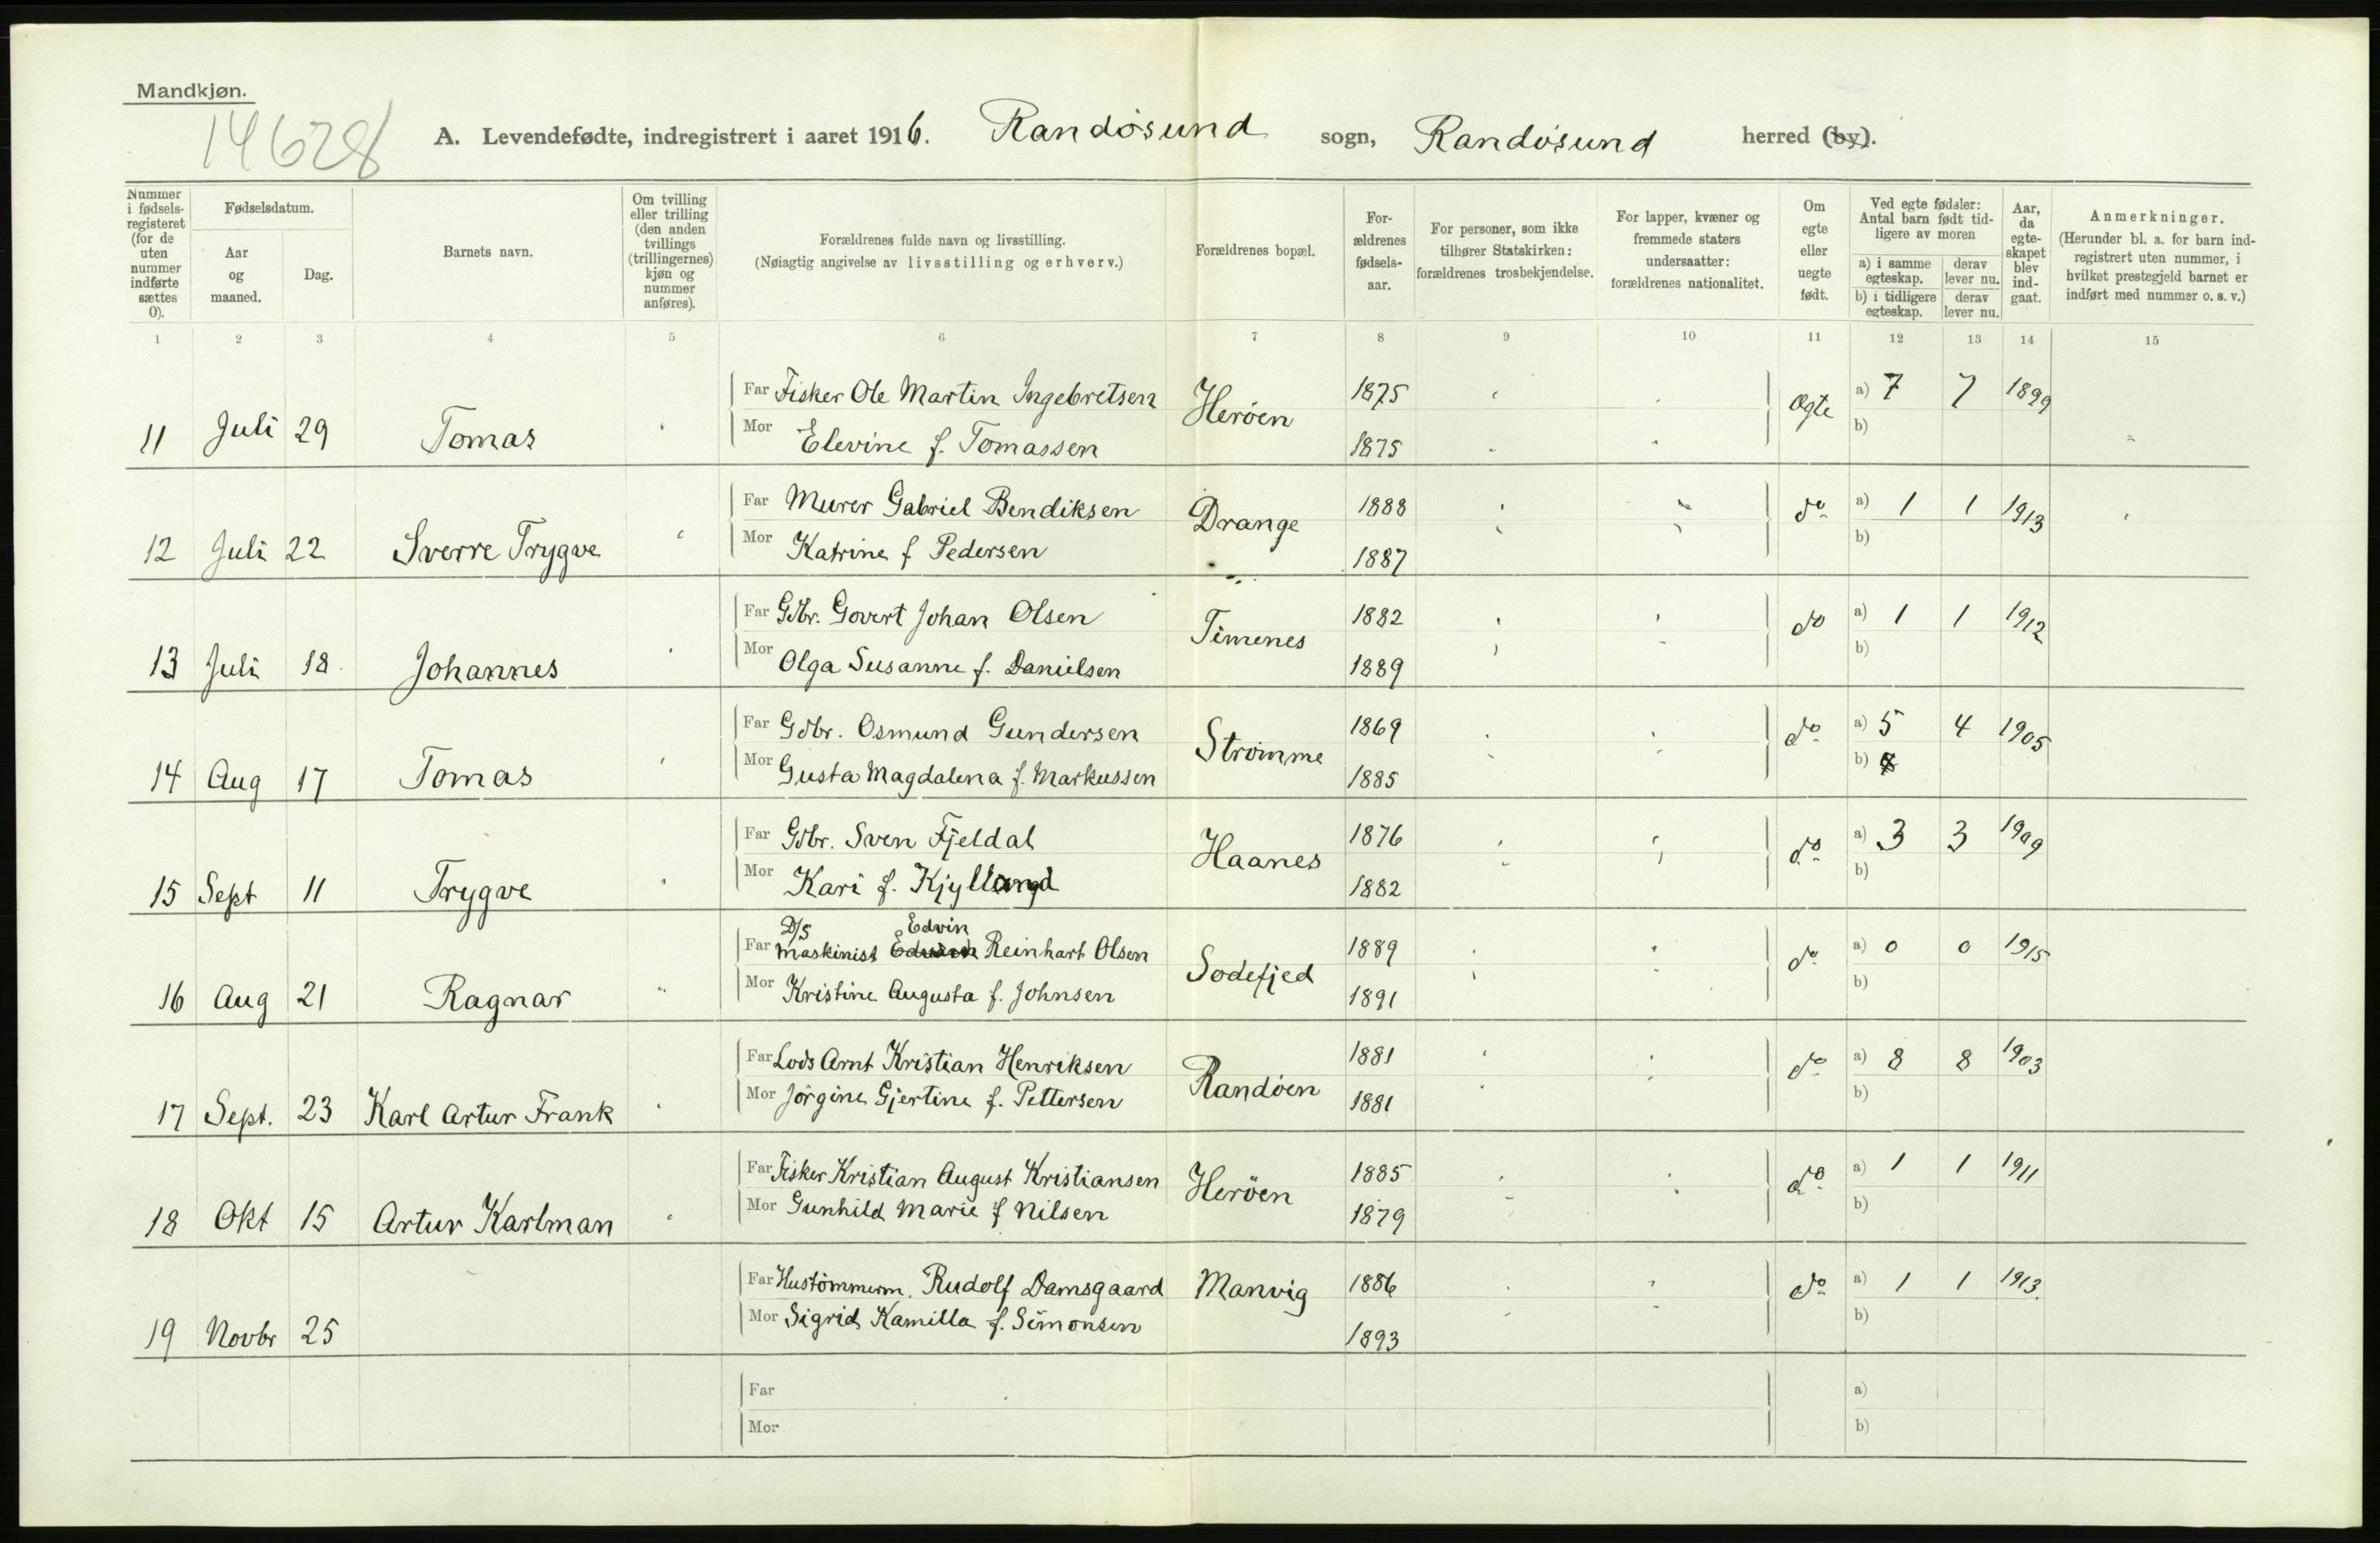 Mandkjøn.
14628
A. Levendefødte, indregistrert i aaret 1916. Randøsund sogn, Randøsund herred (by).
Nummer i fødselsregisteret (for de uten nummer indførte sættes 0).
Fødselsdatum.
Aar og maaned.
Dag.
Barnets navn.
Om tvilling eller trilling (den anden tvillings (trillingernes) kjøn og nummer anføres).
Forældrenes fulde navn og livsstilling.
(Nøiagtig angivelse av livsstilling og erhverv.)
Forældrenes bopæl.
Forældrenes fødselsaar.
For personer, som ikke tilhører Statskirken: forældrenes trosbekjendelse.
For lapper, kvæner og fremmede staters undersaatter: forældrenes nationalitet.
Om egte eller uegte født.
Ved egte fødsler: Antal barn født tidligere av moren
a) i samme egteskap. derav lever nu.
b) i tidligere egteskap. derav lever nu.
Aar, da egteskapet blev indgaat.
Anmerkninger.
(Herunder bl. a. for barn indregistrert uten nummer, i hvilket prestegjeld barnet er indført med nummer o. s. v.)
1 2 3 4 5 6 7 8 9 10 11 12 13 14 15
Far Fisker Ole Martin Ingebretsen Herøen 1875 Ægte a) 7 7 1899
11 Juli 29 Tomas Mor Elevine f. Tomassen 1875 b)
Far Murer Gabriel Bendiksen Drange 1888 do a) 1 1 1913
12 Juli 22 Sverre Trygve Mor Katrine f Pedersen 1887 b)
Far Gdbr. Govert Johan Olsen Timenes 1882 do a) 1 1 1912
13 Juli 18. Johannes Mor Olga Susanne f. Danielsen 1889 b)
Far Gdbr. Osmund Gundersen Strømme 1869 do a) 5 4 1905
14 Aug 17 Tomas Mor Gusta Magdalena f. Markussen 1885 b)
Far Gdbr. Sven Fjeldal Haanes 1876 do a) 3 3 1909
15 Sept 11 Trygve Mor Kari f. Kjylland 1882 b)
D/S Edvin
Far Maskinist Reinhart Olsen Sodefjed 1889 do a) 0 0 1915
16 Aug 21 Ragnar Mor Kristine Augusta f. Johnsen 1891 b)
Far Lods Arnt Kristian Henriksen Randøen 1881 do a) 8 8 1903
17 Sept. 23 Karl Artur Frank Mor Jørgine Gjertine f. Pettersen 1881 b)
Far Fisker Kristian August Kristiansen Herøen 1885 do a) 1 1 1911
18 Okt 15 Artur Karlman Mor Gunhild Marie f Nilsen 1879 b)
Far Hustømmerm. Rudolf Damsgaard Manvig 1886 do a) 1 1 1913.
19 Novbr 25 Mor Sigrid Kamilla f. Simonsen 1893 b)
Far a)
Mor b)